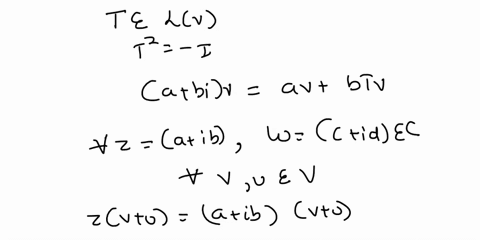 T ε L(v)
T² = -I
(a+bi)v = av + bTv
∀ z = (a+ib), w = (c+id) ε C
∀ v, u ε V
z(v+u) = (a+ib) (v+u)